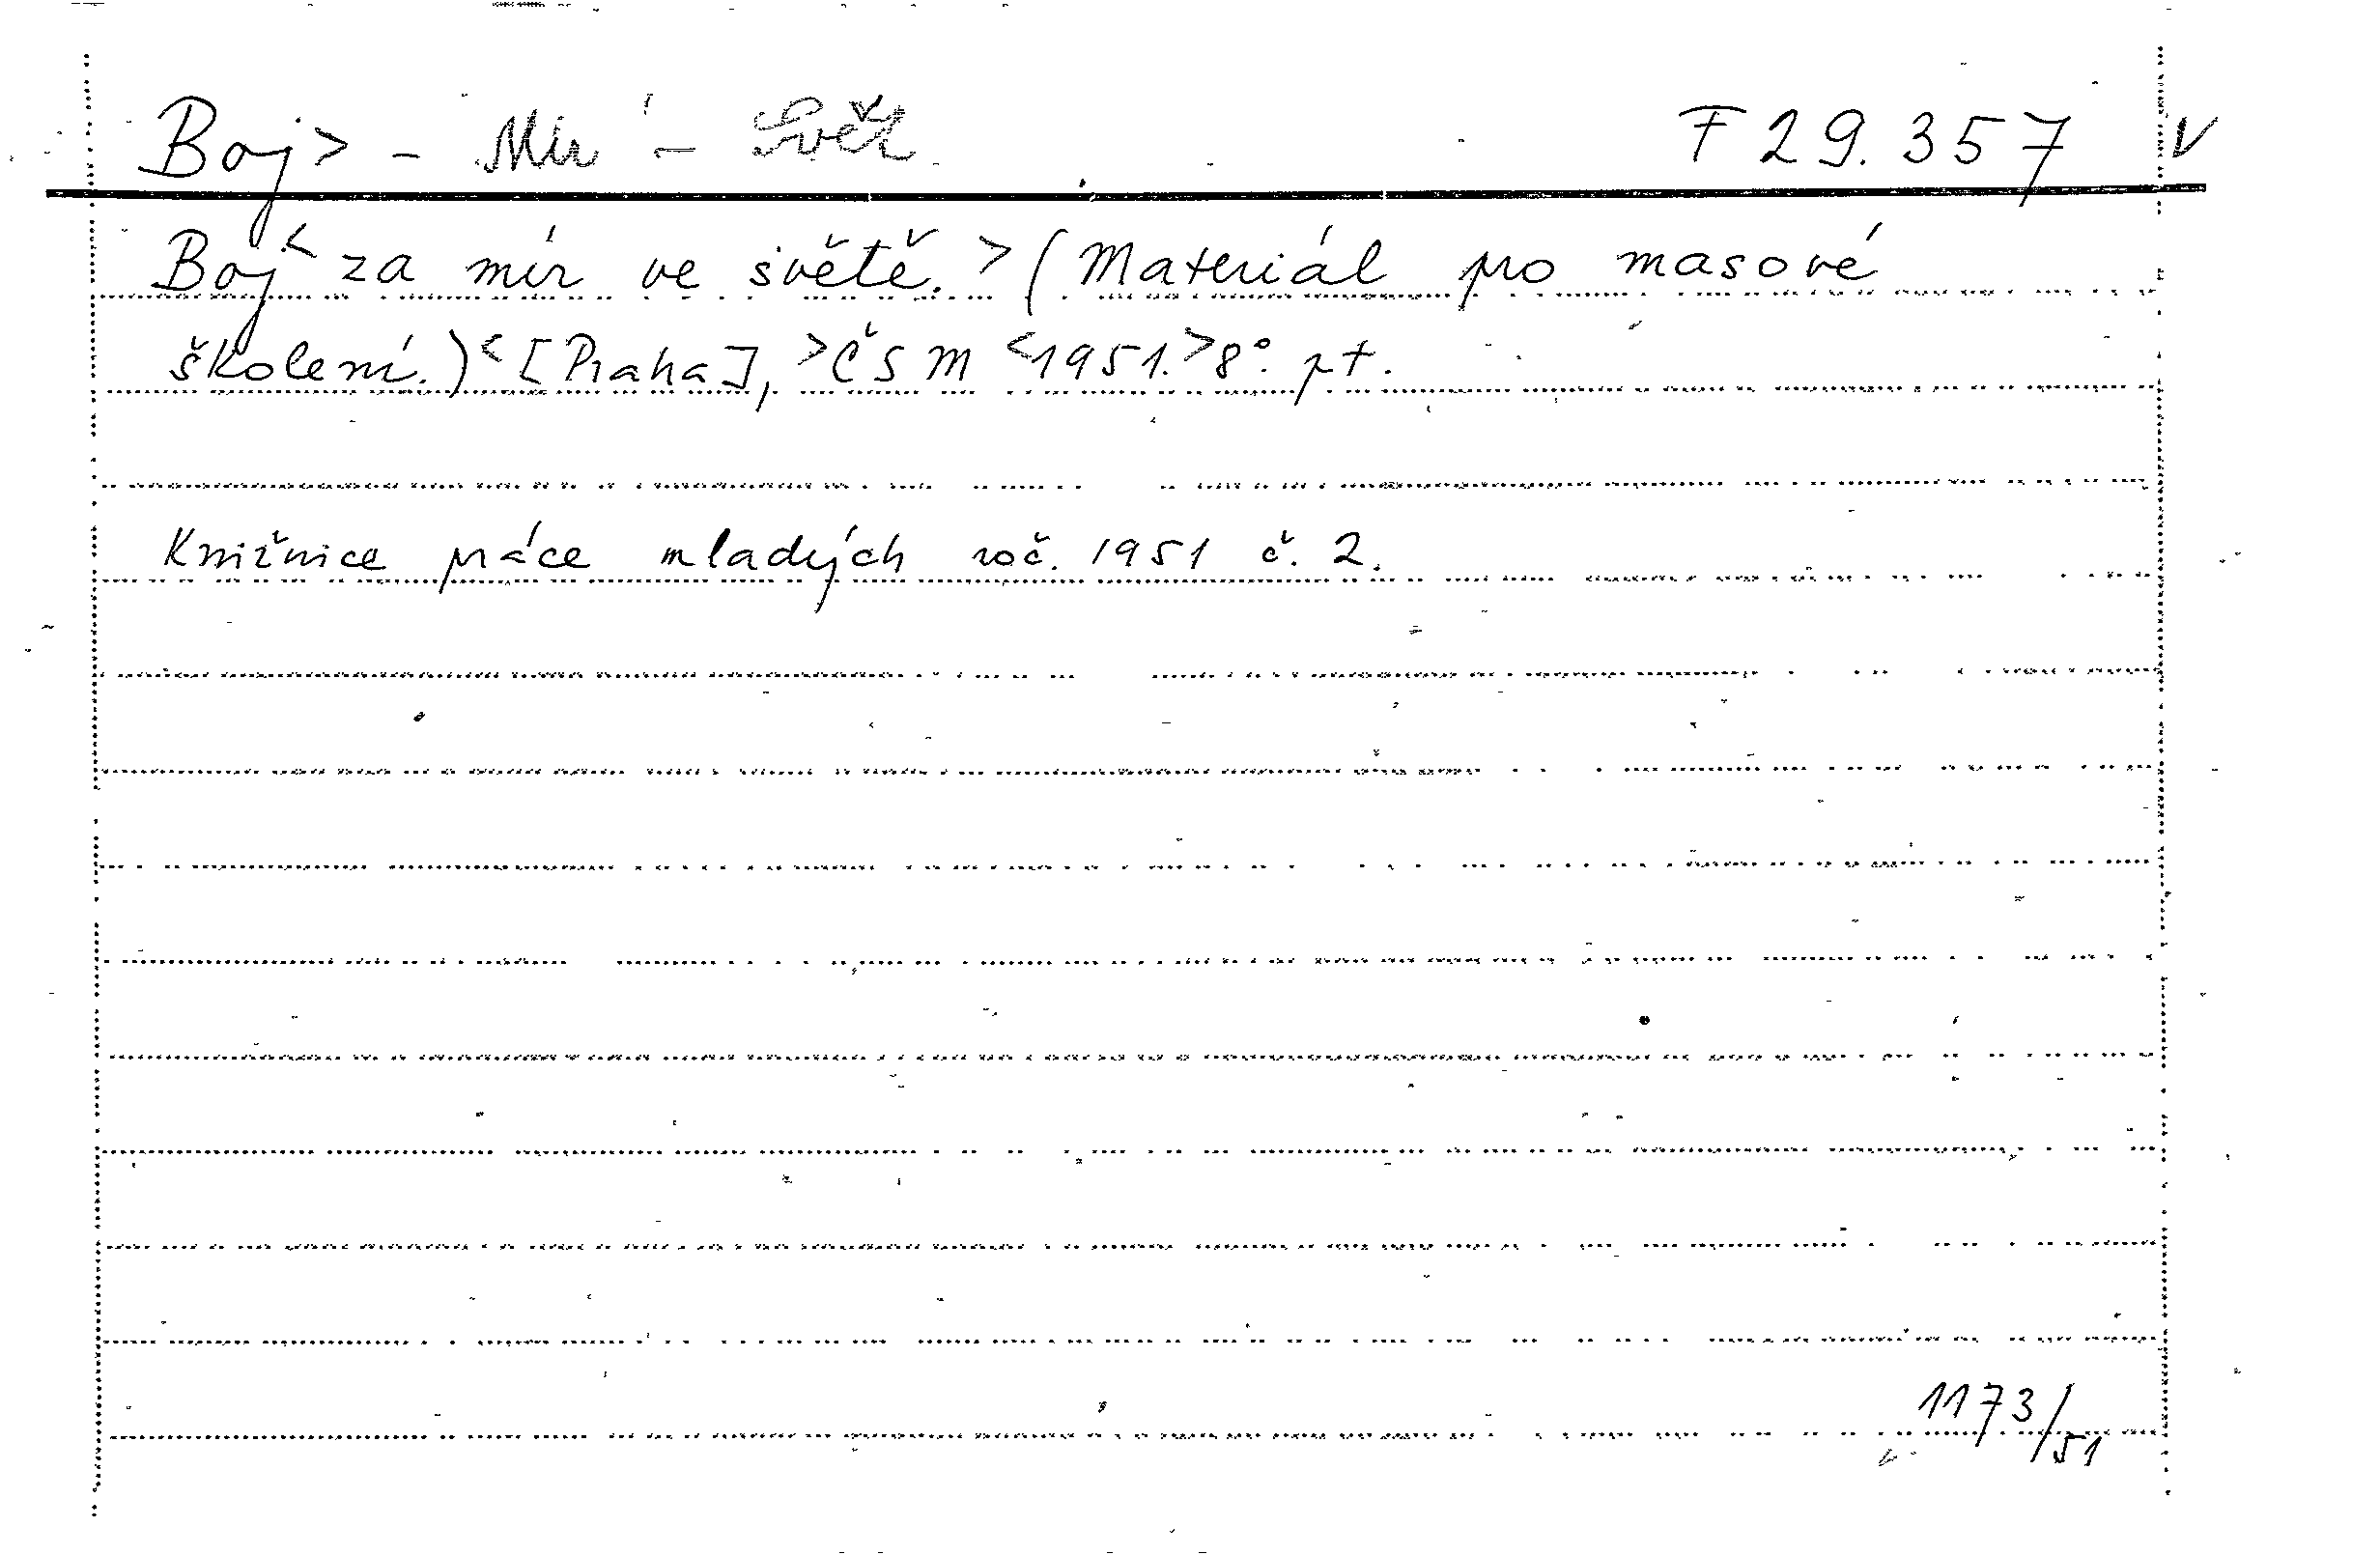 Boj> - Mír - Svět F 29.357 V
Boj< za mír ve světě.> (Materiál pro masové
školení.)< [Praha], >ČSM <1951.> 8°. pt.
Knižnice práce mladých roč. 1951 č. 2.
1173/51